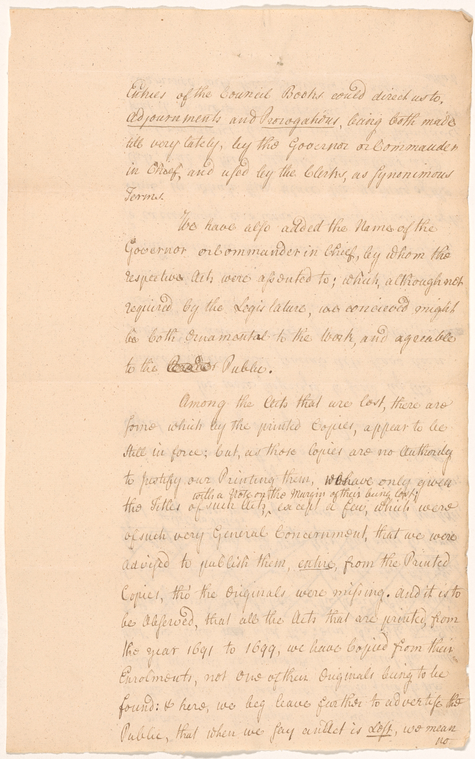 Entries of the Council Books could direct us to.
Adjournments and Prorogations, being both made
till very lately, by the Governor or Commander
in Chief, and us'd by the Clerks, as Synonimous
Terms.
We have also added the Name of the
Governor or Commander in Chief, by whom the
respective Acts were assented to; which, although not
required by the Legislature, we conceived might
be both Ornamental to the Work, and agreable
to the Reader Public.
Among the Acts that are lost, there are
some which by the printed Copies, appear to be
still in force; but, as those Copies are no Authority
to justify our Printing them, we have only given
with a Note on the Margin of their being lost
the Titles of such Acts, except a few, which were
of such very General Concernment, that we were
advised to publish them, entire, from the Printed
Copies, tho' the Originals were missing. And it is to
be Observed, that all the Acts that are printed, from
the year 1691 to 1699, we have Copied from their
Enrolments, not One of their Originals being to be
found: & here, we beg leave further to advertise the
Public, that when we say an Act is Lost, we mean
no